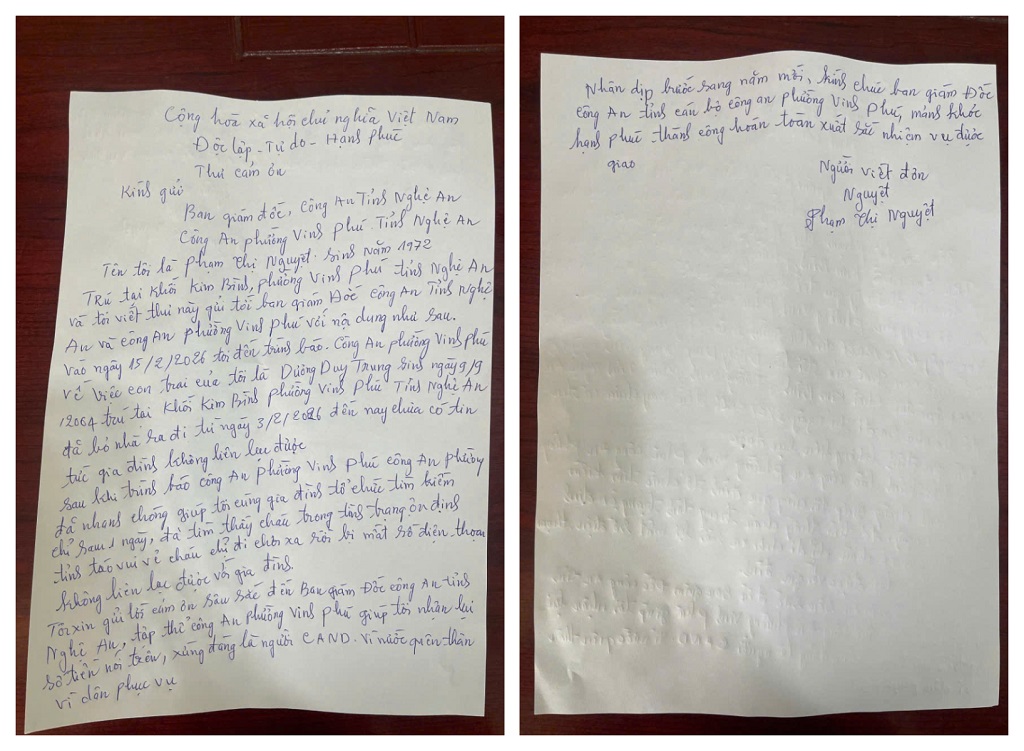 Cộng hoà xã hội chủ nghĩa Việt Nam
Độc lập - Tự do - Hạnh phúc
Thư cảm ơn
Kính gửi
Ban giám đốc, Công An Tỉnh Nghệ An
Công An phường Vinh phú. Tỉnh Nghệ An
Tên tôi là Phạm Thị Nguyệt. Sinh năm 1972
Trú tại khối Kim Bình, phường Vinh phú tỉnh Nghệ An
và tôi viết thư này gửi tới ban giám Đốc công An Tỉnh Nghệ
An và công An phường Vinh phú với nội dung như sau.
vào ngày 15/2/2026 tôi đến trình báo. Công An phường Vinh phú
về việc con trai của tôi là Dương Duy Trung sinh ngày 9/9
/2004 trú tại Khối Kim Bình phường Vinh Phú Tỉnh Nghệ An
đã bỏ nhà ra đi từ ngày 3/2/2026 đến nay chưa có tin
tức gia đình không liên lạc được
sau khi trình báo công An phường Vinh phú công An phường
đã nhanh chóng giúp tôi cùng gia đình tổ chức tìm kiếm
chỉ sau 1 ngày, đã tìm thấy cháu trong tình trạng ổn định
tỉnh táo vui vẻ cháu chỉ đi chơi xa rồi bị mất số điện thoại
không liên lạc được với gia đình.
Tôi xin gửi lời cảm ơn sâu sắc đến Ban giám Đốc công An tỉnh
Nghệ An, tập thể công An phường Vinh phú giúp tôi nhận lại
số tiền nói trên, xứng đáng là người CAND. Vì nước quên thân
vì dân phục vụ
Nhân dịp bước sang năm mới, kính chúc ban giám Đốc
công An tỉnh cán bộ công an phường Vinh Phú, mạnh khoẻ
hạnh phúc thành công hoàn toàn xuất sắc nhiệm vụ được
giao
Người viết đơn
Nguyệt
Phạm Thị Nguyệt